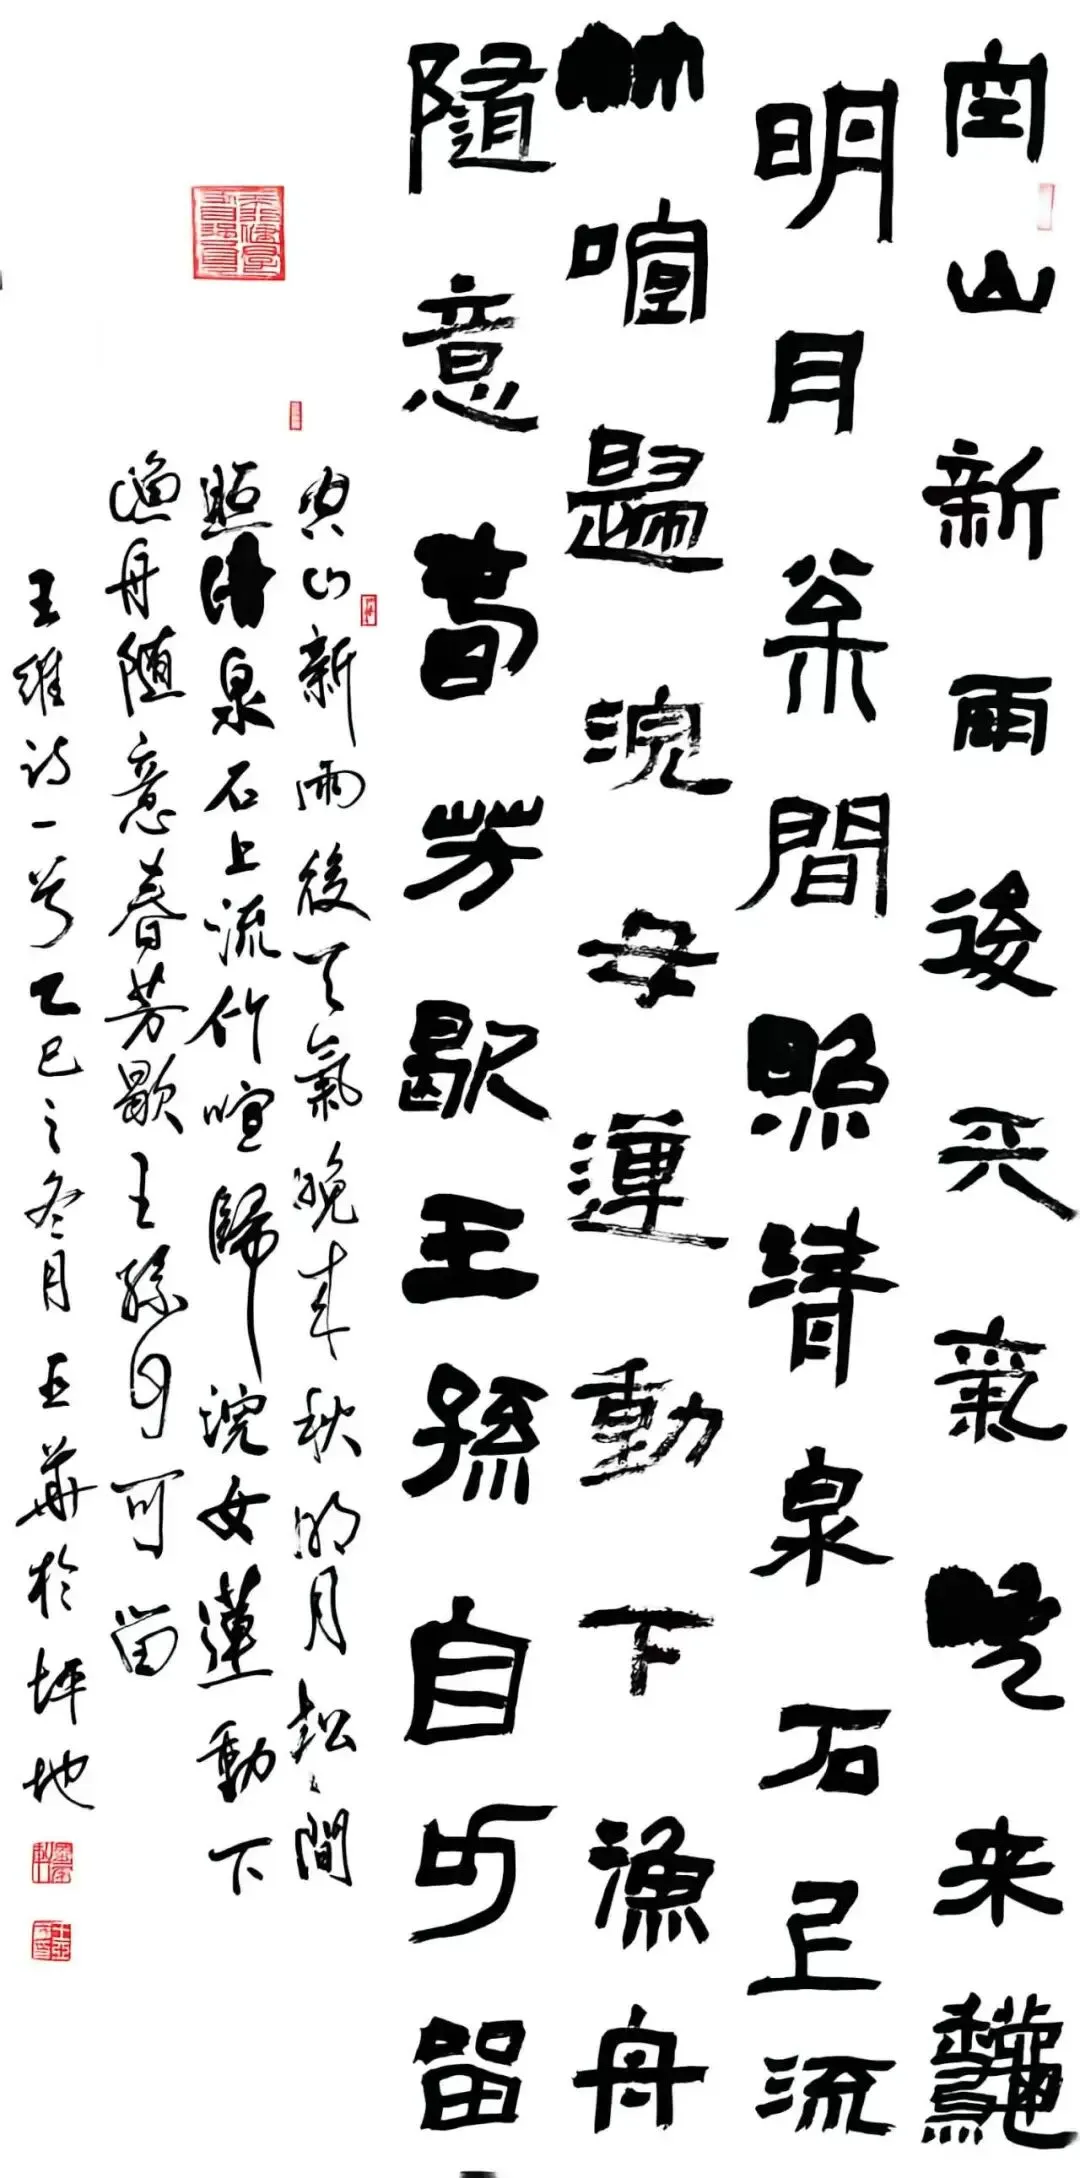 空山新雨後天氣晚来龝
明月枀間照清泉石上流
竹喧歸浣女蓮動下漁舟
隨意春芳歇王孫自可留
空山新雨後天氣晚来秋明月松間
照清泉石上流竹喧歸浣女蓮動下
漁舟随意春芳歇王孫自可留
王維诗一首乙巳之冬月王華於坪地